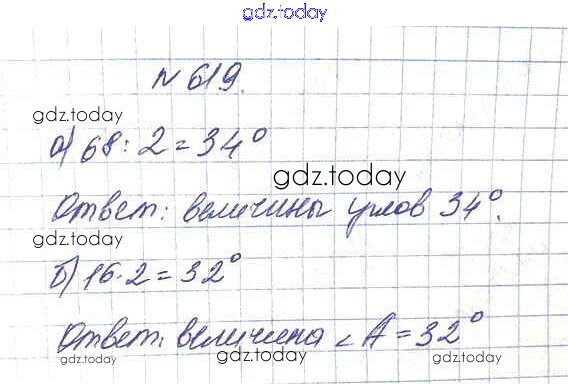 gdz.today
№ 619.
gdz.today
а) 68 : 2 = 34°
gdz.today
Ответ: величины углов 34°.
gdz.today
б) 16 · 2 = 32°
Ответ: величина ∠ A = 32°
gdz.today gdz.today gdz.today